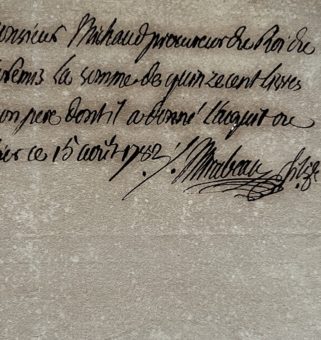 onsieur Michaud procureur du Roi de
remis la somme de quinze cent livres
on pere dont il a donné l'aquit ou
ier ce 15 août 1782 Mirabeau fils